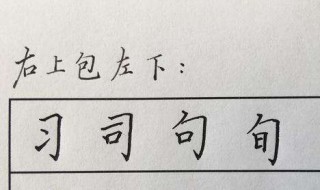 右上包左下：
习司句旬